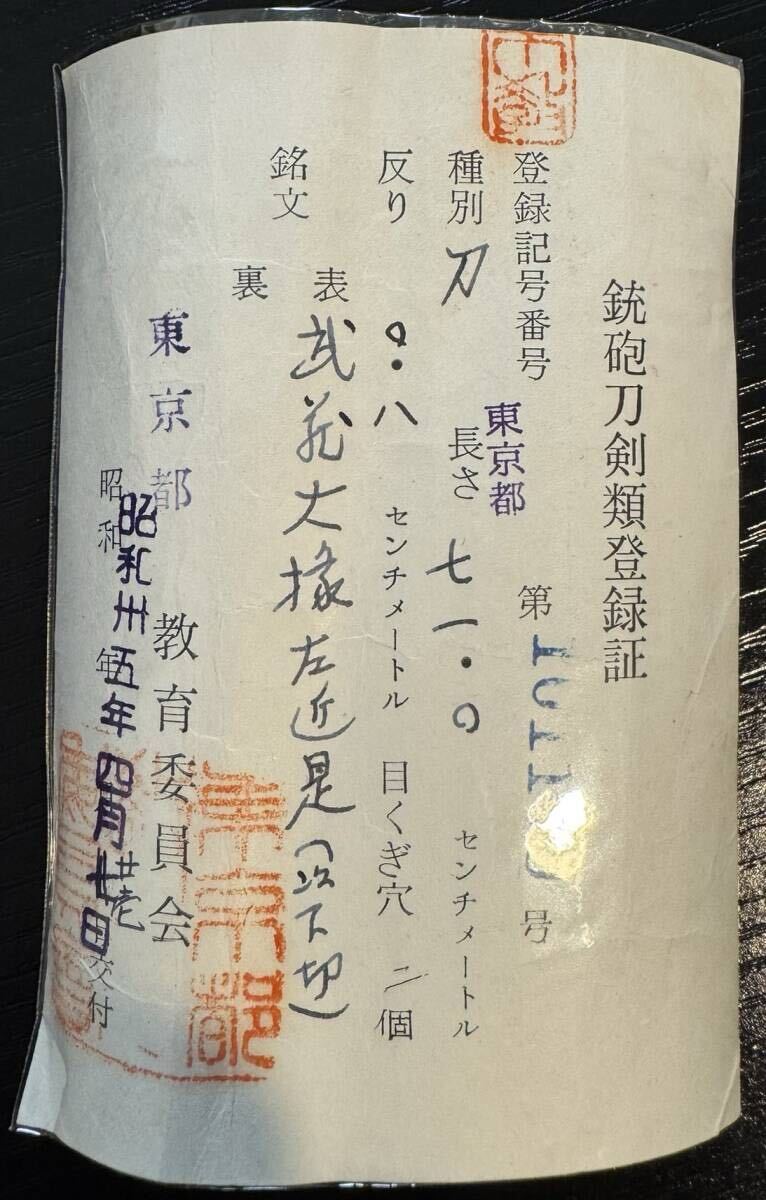 銃砲刀剣類登録証
登録記号番号 東京都 第 号
種別 刀 長さ 七一・〇 センチメートル
反り 〇・八 センチメートル 目くぎ穴 二個
銘文 表 武蔵大掾左近是(以下切)
裏
東京都教育委員会
昭和 昭和卅五年四月 日交付
東京都